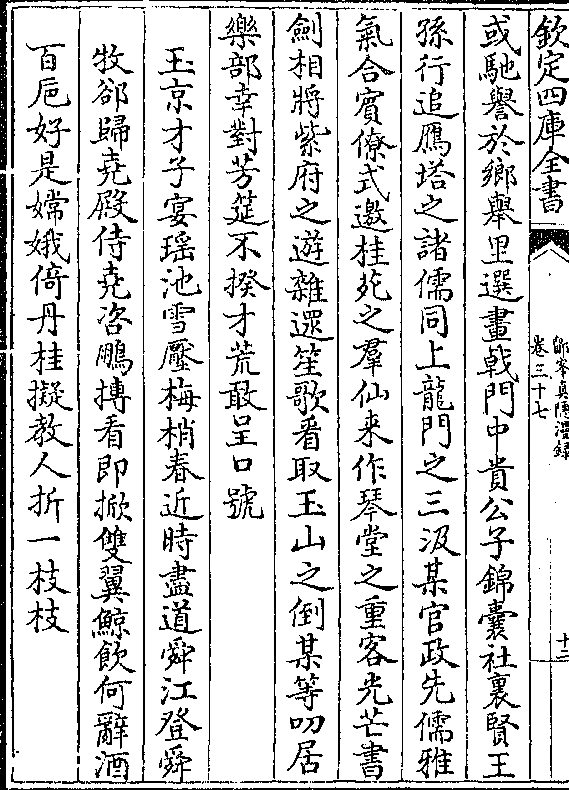 欽定四庫全書
卷三十七
或馳譽於鄉舉里選畫戟門中貴公子錦囊社裏賢王
孫行追鴈塔之諸儒同上龍門之三汲某官政先儒雅
氣合賓僚式邀桂苑之羣仙来作琴堂之重客光芒書
劍相將紫府之遊雜遝笙歌看取玉山之倒某等叨居
樂部幸對芳筵不揆才荒敢呈口號
玉京才子宴瑶池雪壓梅梢春近時盡道舜江登舜
牧郤歸堯殿侍堯咨鵬摶看即掀雙翼鯨飲何辭酒
百巵好是嫦娥倚丹桂擬教人折一枝枝